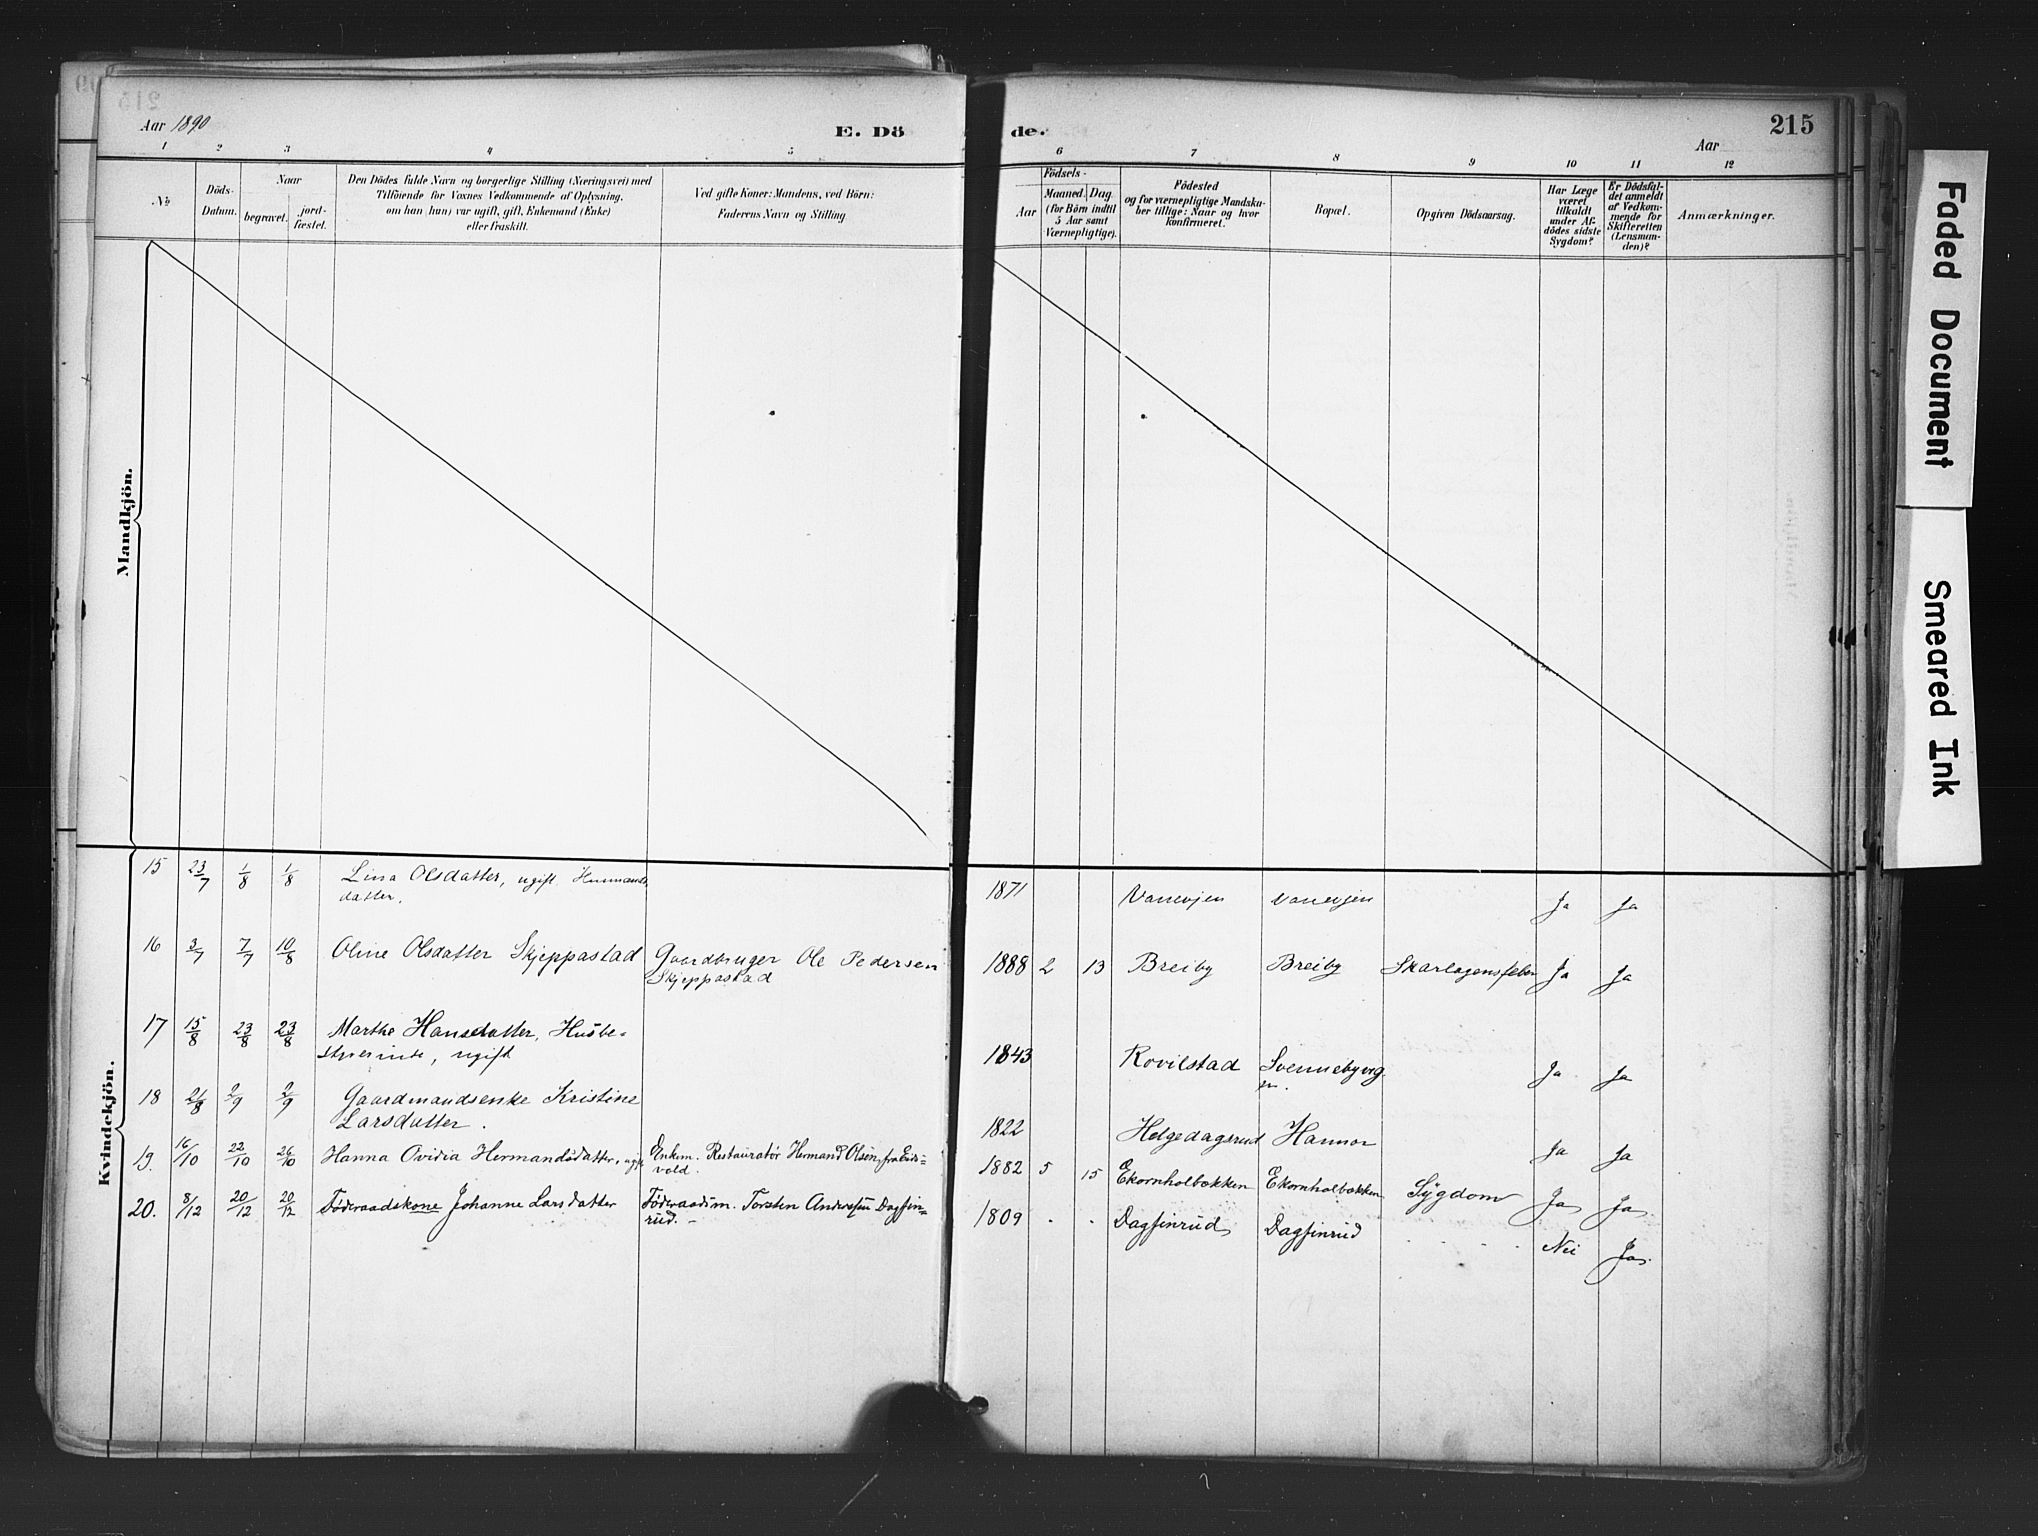 Aar 1890
E. Dö
de.
Aar
215
1 2 3 4 5 6 7 8 9 10 11 12
№
Döds-
Datum.
Naar
begravet.
jord-
fæstet.
Den Dödes fulde Navn og borgerlige Stilling (Næringsvei) med
Tilföiende for Voxnes Vedkommende af Oplysning,
om han (hun) var ugift, gift, Enkemand (Enke)
eller fraskilt.
Ved gifte Koner: Mandens, ved Börn:
Faderens Navn og Stilling
Födsels-
Aar
Maaned. Dag
(for Börn indtil
5 Aar samt
Værnepligtige).
Födested
og for værnepligtige Mandskaber
tillige: Naar og hvor
konfirmeret.
Bopæl.
Opgiven Dödsaarsag.
Har Læge
været
tilkaldt
under Afdödes
sidste
Sygdom?
Er Dödsfaldet
anmeldt
af Vedkommende
for
Skifteretten
(Lensmanden)?
Anmærkninger.
Mandkjön.
Kvindekjön.
15 23/7 1/8 1/8 Lina Olsdatter, ugift, Husmands
datter.
1871 Vanevjen Vanevjen Ja Ja
16 3/7 7/7 10/8 Oline Olsdatter Skjeppastad Gaardbruger Ole Pedersen
Skjeppastad
1888 2 13 Breiby Breiby Skarlagensfeber Ja Ja
17 15/8 23/8 23/8 Marthe Hansdatter, Husbe-
styrerinde, ugift
1843 Rovilstad Svennebyeg Ja Ja
18 21/8 2/9 2/9 Gaardmandsenke Kristine
Larsdatter.
1822 Helgedagsrud Hannor Ja Ja
19. 16/10 22/10 26/10 Hanna Ovidia Hermandsdatter, ugift Enkem. Restauratør Hermand Olsen, fra Eids-
vold.
1882 5 15 Ekornholbækken Ekornholbækken Sygdom Ja Ja
20. 8/12 20/12 20/12 Føderaadskone Johanne Larsdatter Føderaadsm. Torsten Anderssen Dagfin-
rud. -
1809 Dagfinrud Dagfinrud Nei Ja
Faded Document
Smeared Ink